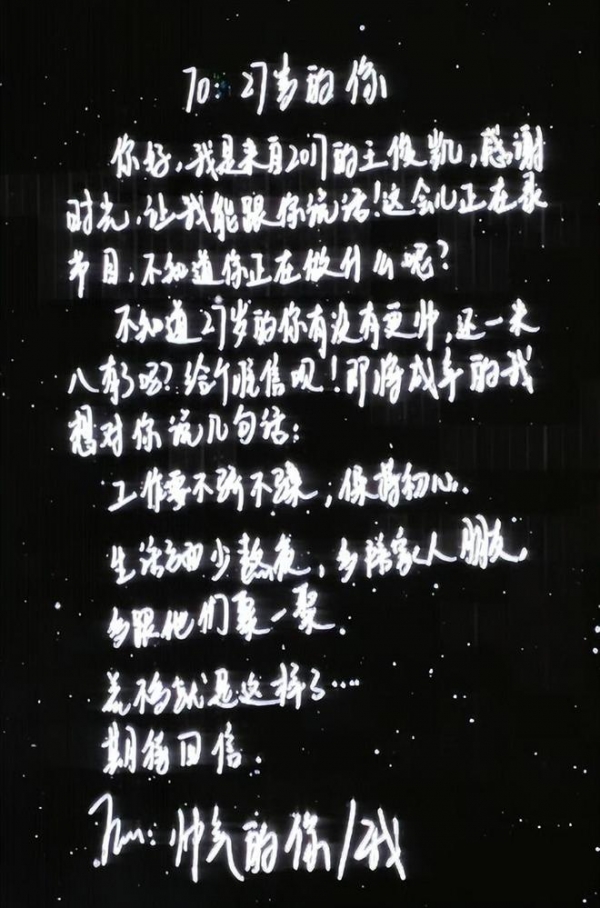 To：27岁的你
你好，我是来自2017的王俊凯，感谢
时光，让我能跟你说话！这会儿正在录
节目，不知道你正在做什么呢？
不知道27岁的你有没有更帅，还一米
八有了吗？给个准信呗！即将成年的我
想对你说几句话：
工作要不骄不躁，保持初心.
生活上面少熬夜，多陪家人朋友，
多跟他们聚一聚.
差不多就是这样了....
期待回信.
From：帅气的你/我